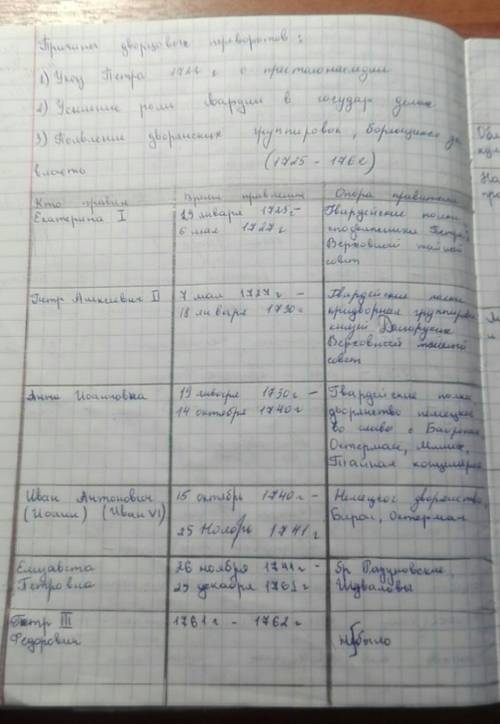 Причины дворцовых переворотов:
1) Указ Петра 1722 г о престолонаследии
2) Усиление роли гвардии в государ делах
3) Появление дворянских группировок, борющихся за
власть (1725 - 1762)
Кто правил Время правления Опора правителя
Екатерина I
29 января 1725г-
6 мая 1727 г
Гвардейские полки
сподвижники Петра
Верховный тайный
совет
Петр Алексеевич II
7 мая 1727 г -
18 января 1730 г
Гвардейские полки
придворная группировка
князей Долгоруких
Верховный тайный
совет
Анна Иоановна
19 января 1730 г -
14 октября 1740 г
Гвардейские полки
дворянство немецкое
во главе с
Остерман, Миних,
Тайная канцелярия
Иван Антонович
(Иоанн) (Иван VI)
15 октябрь 1740 г -
25 Ноябрь 1741 г
Немецкое дворянство
Бирон, Остерман
Елизавета
Петровна
26 ноября 1741 -
25 декабря 1761 г
бр Разумовские
Шуваловы
Петр III
Федорович
1761 г - 1762 г
не было
На